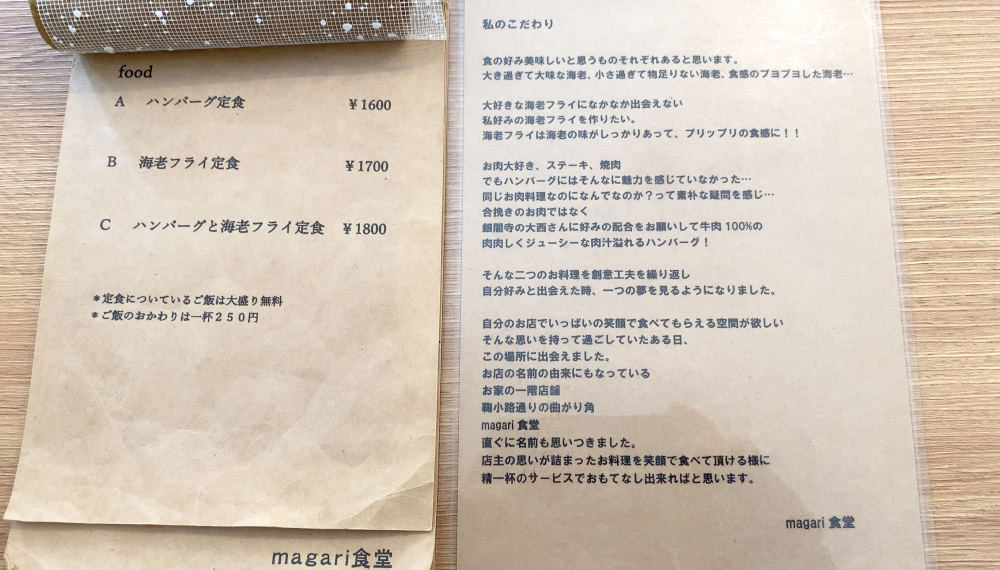 food
A ハンバーグ定食 ￥1600
B 海老フライ定食 ￥1700
C ハンバーグと海老フライ定食 ￥1800
＊定食についているご飯は大盛り無料
＊ご飯のおかわりは一杯２５０円
magari食堂
私のこだわり
食の好み美味しいと思うものそれぞれあると思います。
大き過ぎて大味な海老、小さ過ぎて物足りない海老、食感のブヨブヨした海老…
大好きな海老フライになかなか出会えない
私好みの海老フライを作りたい。
海老フライは海老の味がしっかりあって、プリップリの食感に！！
お肉大好き、ステーキ、焼肉
でもハンバーグにはそんなに魅力を感じていなかった…
同じお肉料理なのになんでなのか？って素朴な疑問を感じ…
合挽きのお肉ではなく
銀閣寺の大西さんに好みの配合をお願いして牛肉 100%の
肉肉しくジューシーな肉汁溢れるハンバーグ！
そんな二つのお料理を創意工夫を繰り返し
自分好みと出会えた時、一つの夢を見るようになりました。
自分のお店でいっぱいの笑顔で食べてもらえる空間が欲しい
そんな思いを持って過ごしていたある日、
この場所に出会えました。
お店の名前の由来にもなっている
お家の一階店舗
鞠小路通りの曲がり角
magari 食堂
直ぐに名前も思いつきました。
店主の思いが詰まったお料理を笑顔で食べて頂ける様に
精一杯のサービスでおもてなし出来ればと思います。
magari 食堂